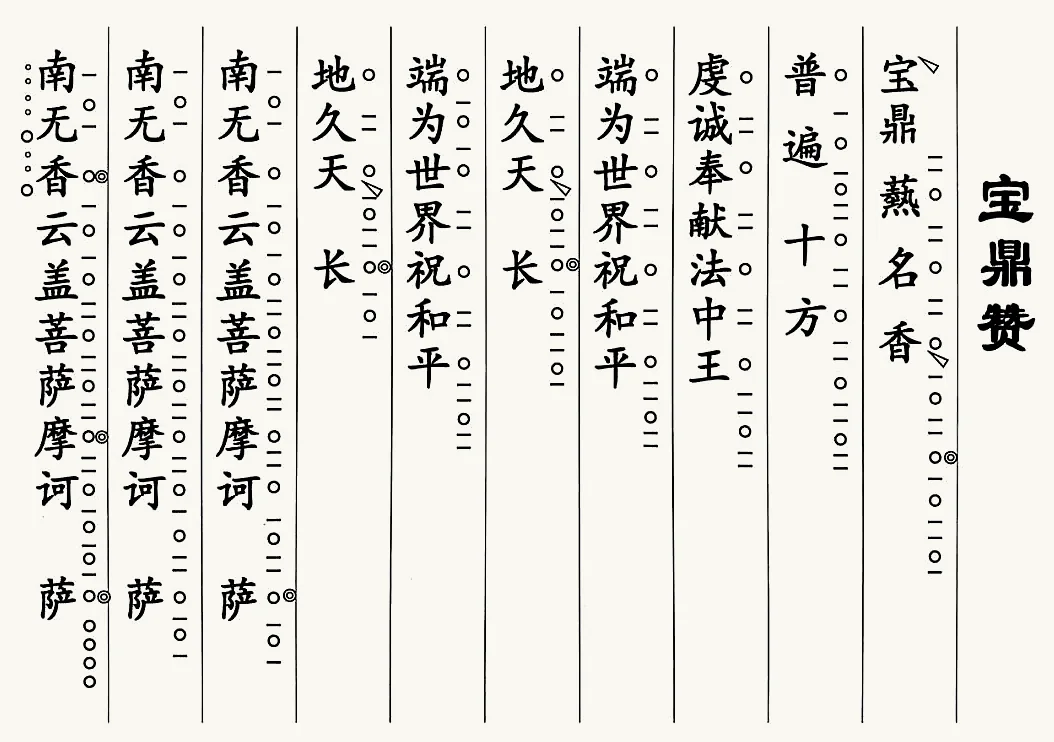 宝鼎赞
宝鼎爇名香
普遍十方
虔诚奉献法中王
端为世界祝和平
地久天长
端为世界祝和平
地久天长
南无香云盖菩萨摩诃萨
南无香云盖菩萨摩诃萨
南无香云盖菩萨摩诃萨